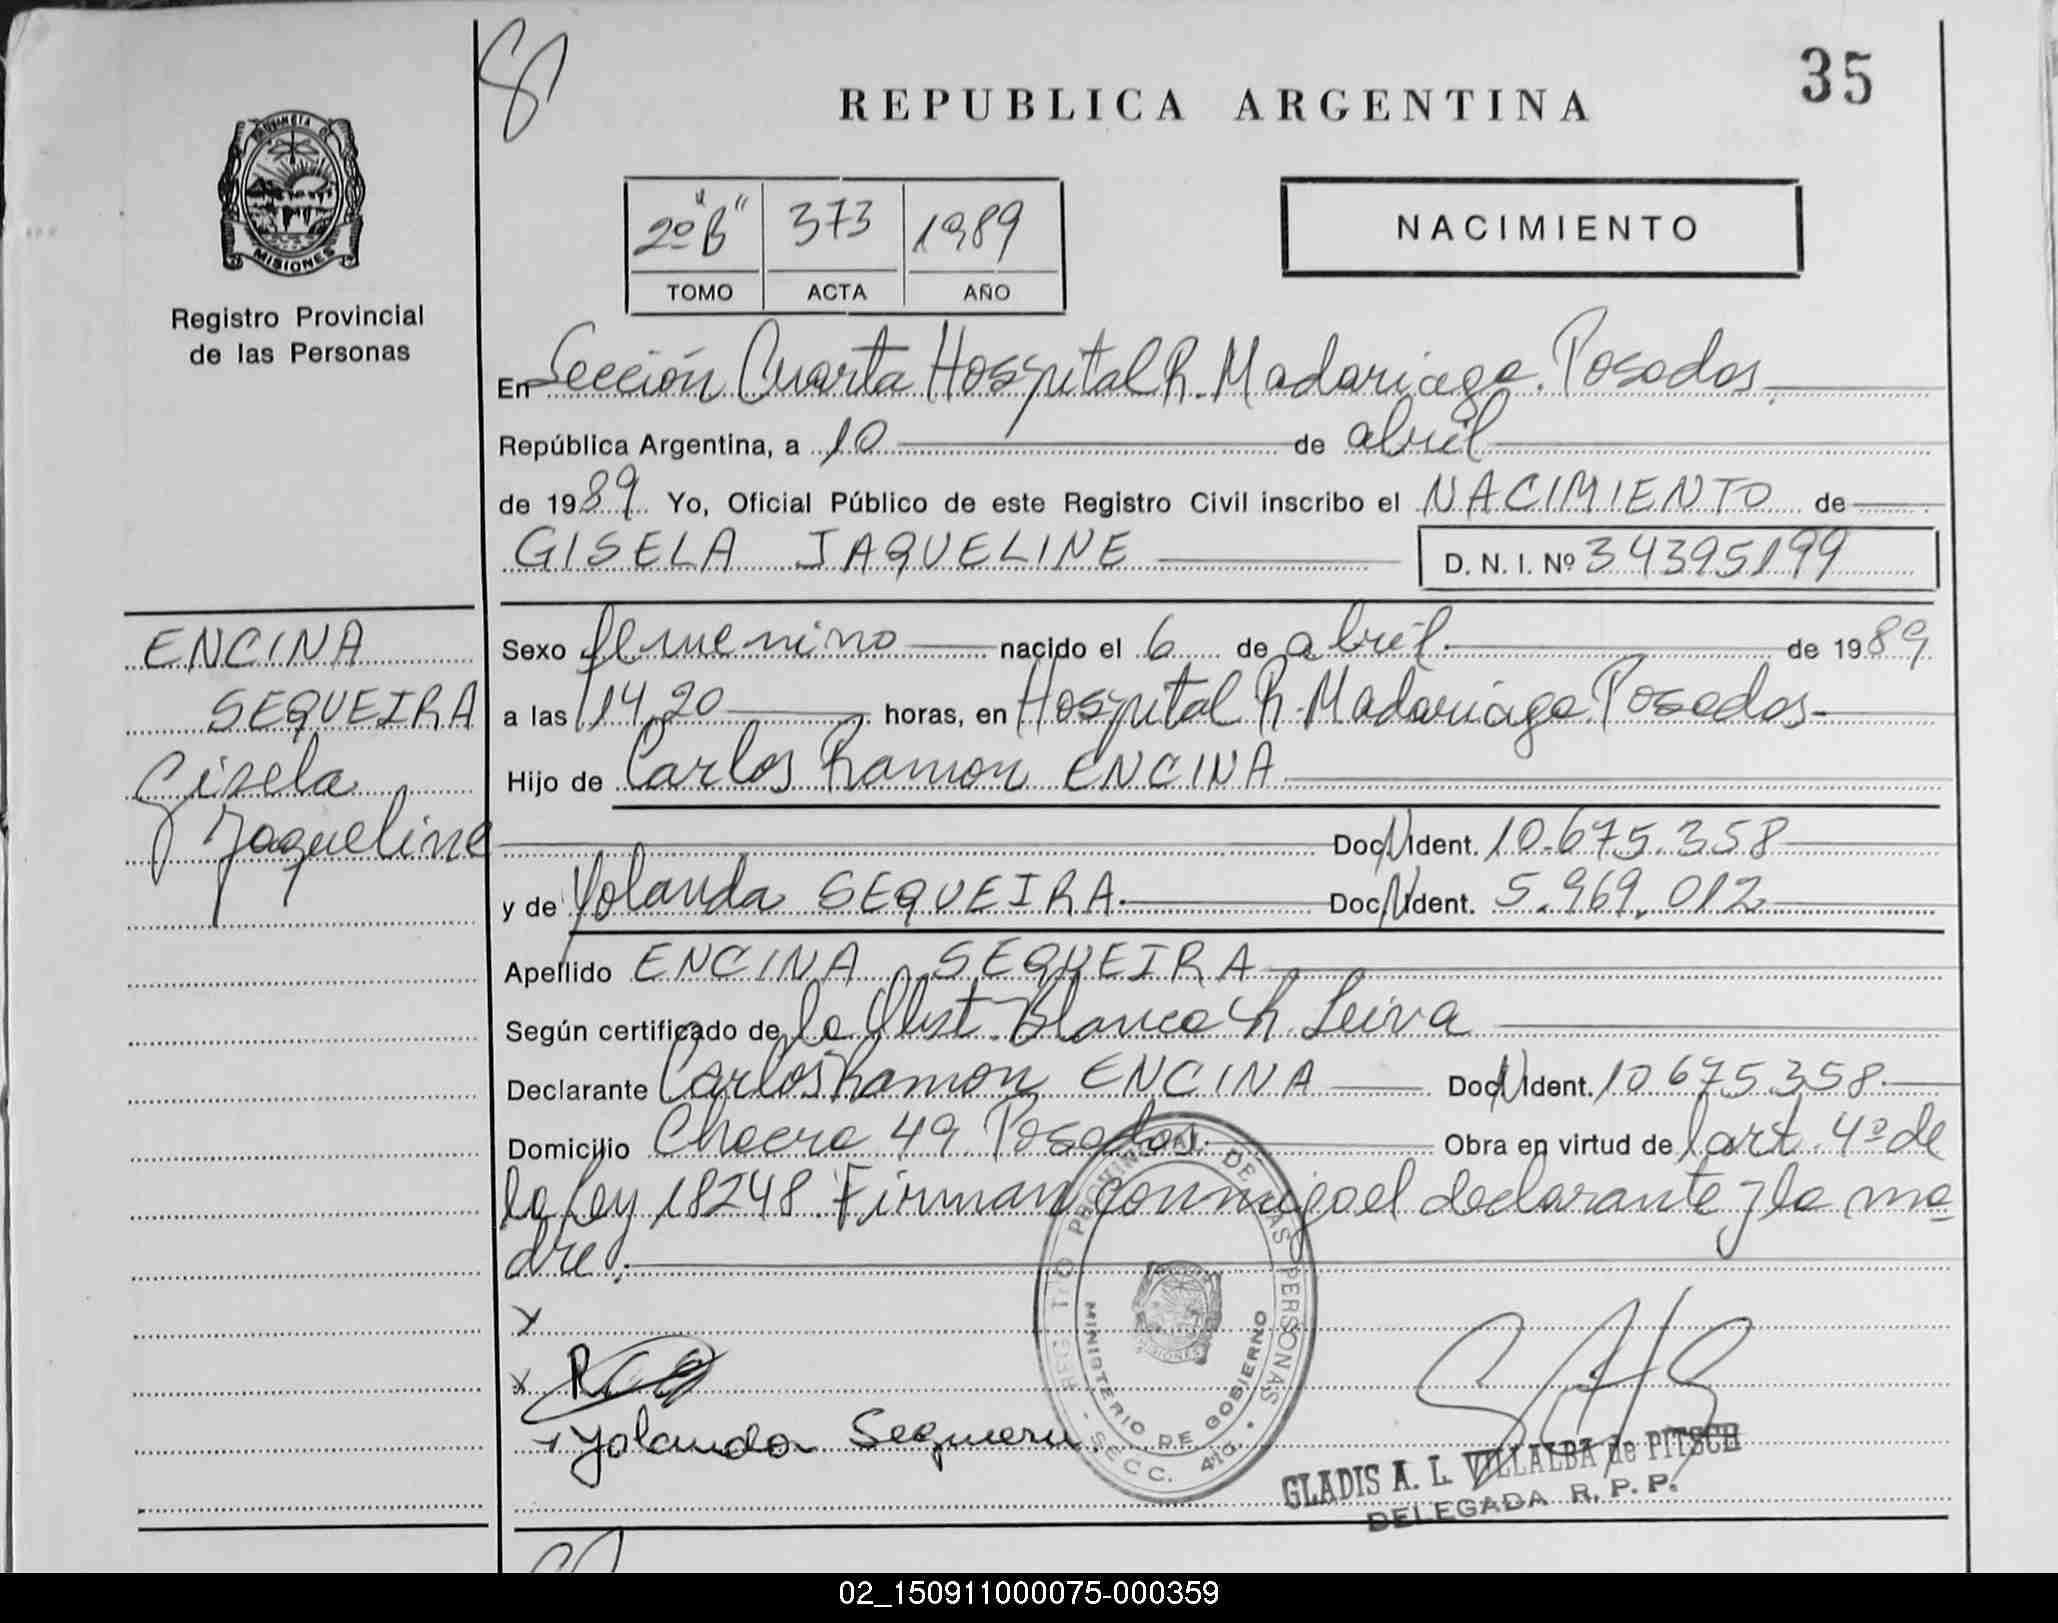 35
REPUBLICA ARGENTINA
PROVINCIA DE
MISIONES
Registro Provincial
de las Personas
2º "B" 373 1989
TOMO ACTA AÑO
NACIMIENTO
En Sección Cuarta Hospital R. Madariaga. Posadas.
República Argentina, a 10 de abril
de 1989 Yo, Oficial Público de este Registro Civil inscribo el NACIMIENTO de
GISELA JAQUELINE D. N. I. Nº 34395199
ENCINA
SEQUEIRA
Gisela
Jaqueline
Sexo femenino nacido el 6 de abril de 1989
a las 14,20 horas, en Hospital R. Madariaga. Posadas
Hijo de Carlos Ramon ENCINA
Doc. Ident. 10.675.358
y de Yolanda SEQUEIRA Doc. Ident. 5.969.012
Apellido ENCINA SEQUEIRA
Según certificado de la Obst. Blanca R. Leiva
Declarante Carlos Ramon ENCINA Doc. Ident. 10.675.358
Domicilio Chacra 49 Posadas. Obra en virtud de l art. 4º de
la Ley 18248. Firman conmigo el declarante y la ma-
dre.
x
x
+ Yolanda Sequeira
REGISTRO PROVINCIAL DE LAS PERSONAS
MINISTERIO DE GOBIERNO
SECC. 4ta.
MISIONES
GLADIS A. L. VILLALBA de PITSCH
DELEGADA R. P. P.
02_150911000075-000359